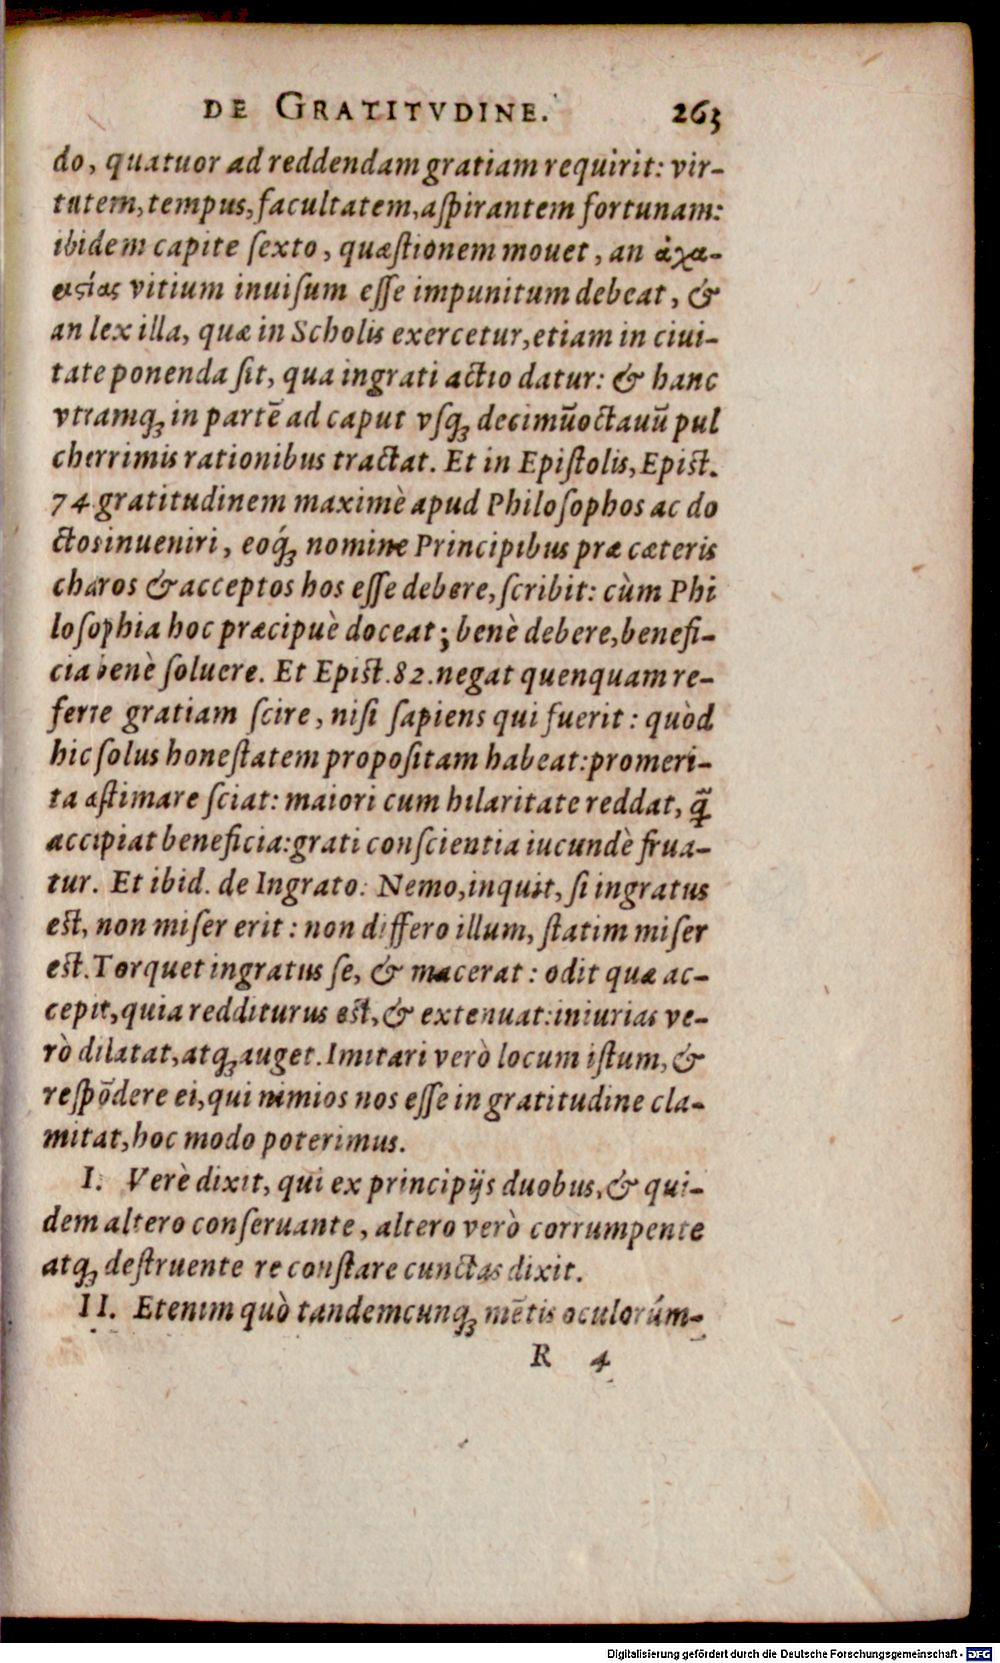 DE GRATITVDINE. 263
do, quatuor ad reddendam gratiam requirit: vir-
tutem, tempus, facultatem, aſpirantem fortunam:
ibidem capite ſexto, quæſtionem mouet, an ἀχα-
ειςίας vitium inuiſum eſſe impunitum debeat, &
an lex illa, quæ in Scholis exercetur, etiam in ciui-
tate ponenda ſit, qua ingrati actio datur: & hanc
vtramq; in partē ad caput vſq; decimūoctauū pul
cherrimis rationibus tractat. Et in Epiſtolis, Epiſt.
74 gratitudinem maximè apud Philoſophos ac do
ctos inueniri, eoq́; nomine Principibus præ cæteris
charos & acceptos hos eſſe debere, ſcribit: cùm Phi
loſophia hoc præcipuè doceat; benè debere, benefi-
cia benè ſoluere. Et Epiſt. 82. negat quenquam re-
ferre gratiam ſcire, niſi ſapiens qui fuerit: quòd
hic ſolus honeſtatem propoſitam habeat: promeri-
ta æſtimare ſciat: maiori cum hilaritate reddat, q̃
accipiat beneficia: grati conſcientia iucundè frua-
tur. Et ibid. de Ingrato: Nemo, inquit, ſi ingratus
eſt, non miſer erit: non differo illum, ſtatim miſer
eſt. Torquet ingratus ſe, & macerat: odit quæ ac-
cepit, quia redditurus eſt, & extenuat: iniurias ve-
rò dilatat, atq; auget. Imitari verò locum iſtum, &
reſpōdere ei, qui nimios nos eſſe in gratitudine cla-
mitat, hoc modo poterimus.
I. Verè dixit, qui ex principijs duobus, & qui-
dem altero conſeruante, altero verò corrumpente
atq; deſtruente re conſtare cunctas dixit.
II. Etenim quò tandemcunq; mētis oculorúm-
R 4
Digitalisierung gefördert durch die Deutsche Forschungsgemeinschaft - DFG